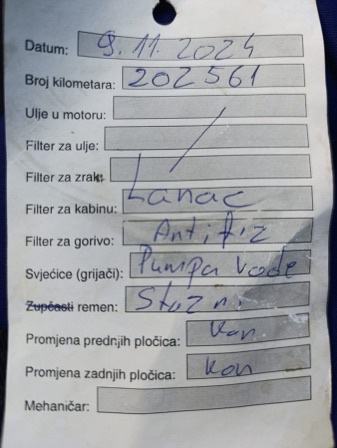 Datum: 9.11.2024
Broj kilometara: 202561
Ulje u motoru:
Filter za ulje:
Filter za zrak:
Filter za kabinu: Lanac
Filter za gorivo: Antifiz
Svjećice (grijači): Pumpa vode
Zupčasti remen:
Promjena prednjih pločica: kon
Promjena zadnjih pločica: kon
Mehaničar: